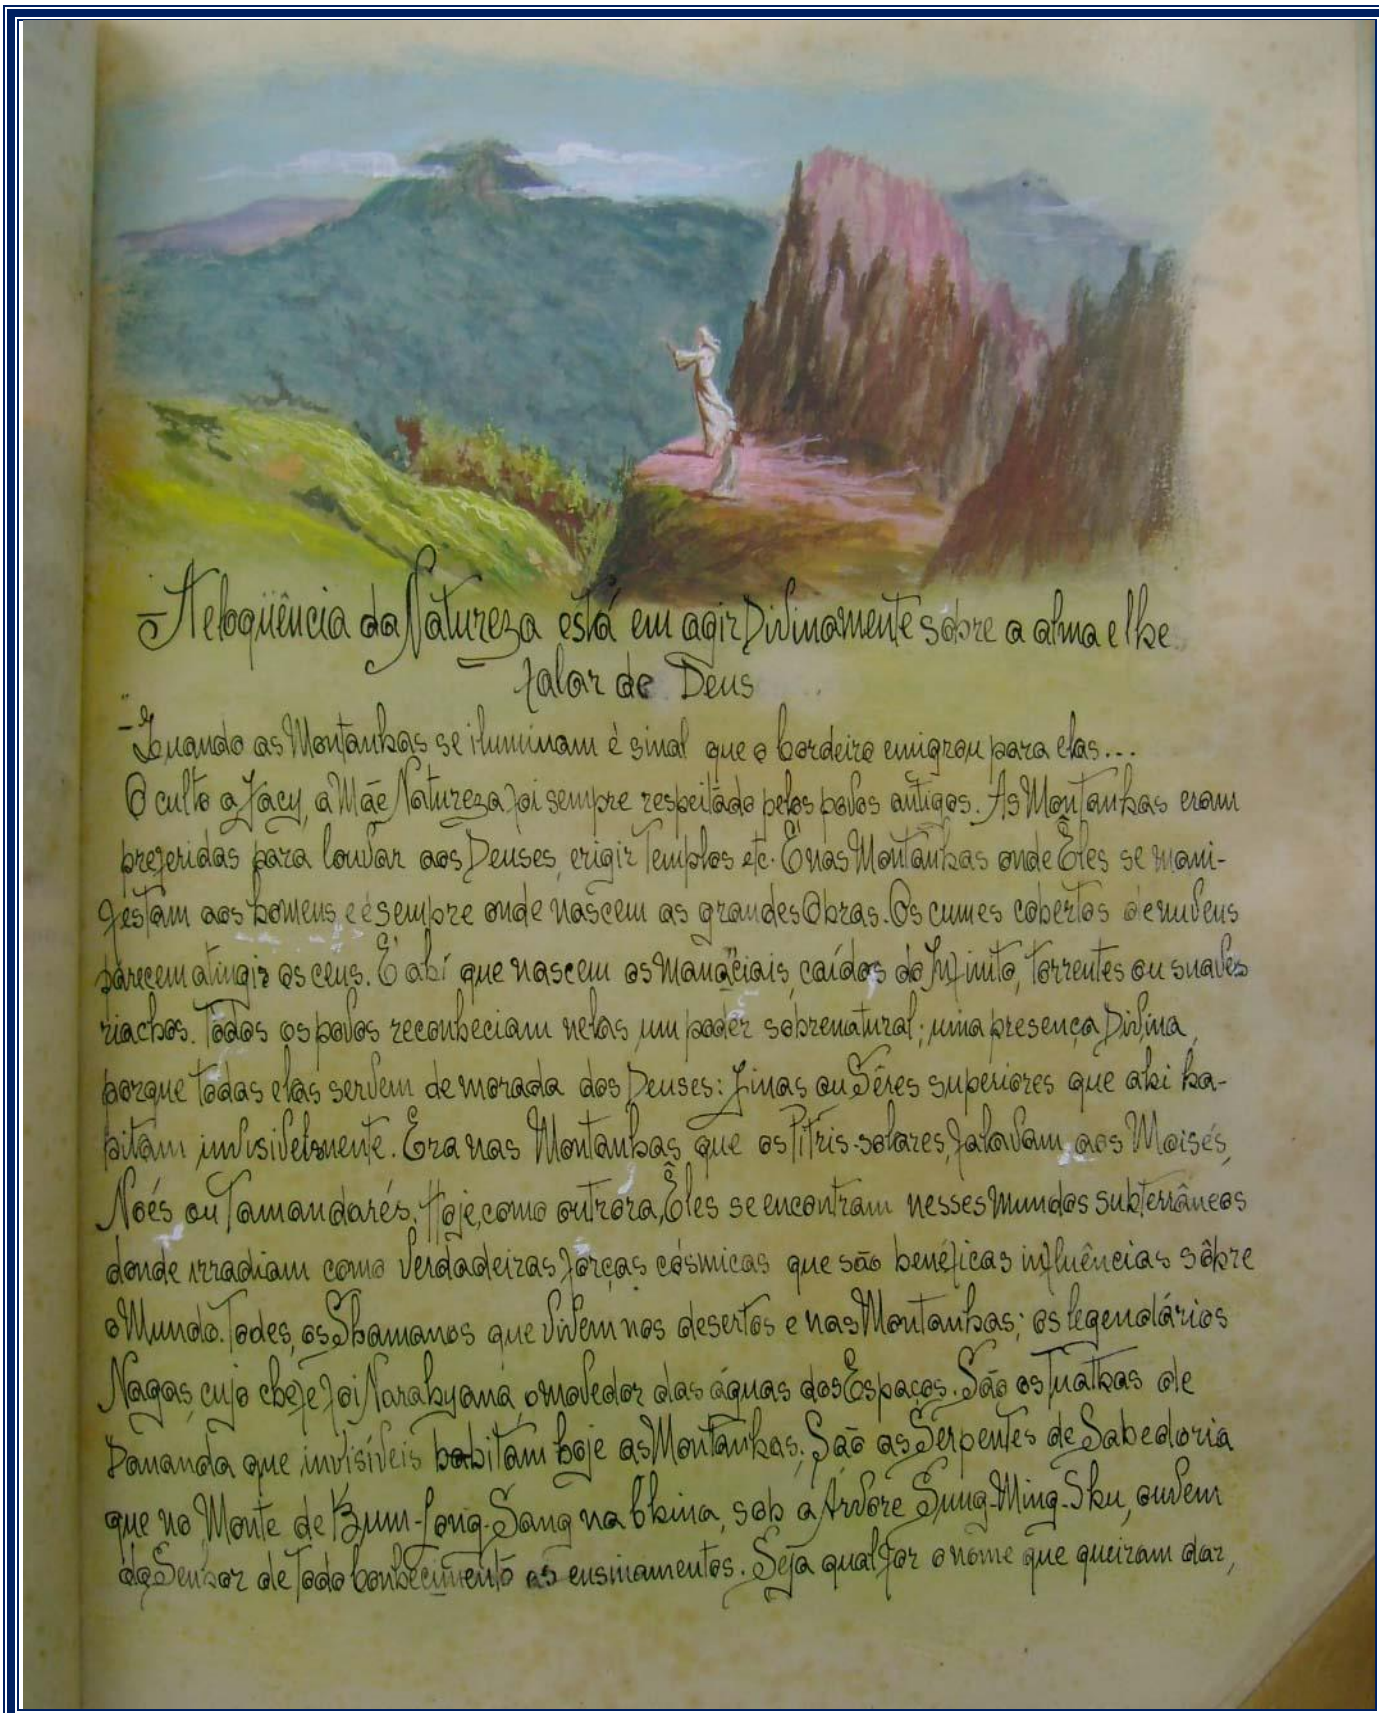 — A eloqüência da Natureza está em agir Divinamente sôbre a alma e lhe
falar de Deus
"— Quando as Montanhas se iluminam é sinal que o Cordeiro emigrou para elas...
O culto a Jacy, a Mãe Natureza foi sempre respeitado pelos povos antigos. As Montanhas eram
preferidas para louvar aos Deuses, erigir Templos etc. É nas Montanhas onde Êles se mani-
festam aos homens e é sempre onde nascem as grandes Obras. Os cumes cobertos de nuvens
parecem atingir os ceus. É ahí que nascem os manaciais, caídos do Infinito, torrentes ou suaves
riachos. Todos os povos reconheciam nelas, um poder sobrenatural; uma presença Divina,
porque todas elas servem de morada dos Deuses: Jinas ou Sêres superiores que ahi ha-
bitam invisivelmente. Era nas Montanhas que os Pitris-solares, falavam aos Moisés,
Noés ou Tamandarés. Hoje, como outrora, Êles se encontram nesses Mundos subterrâneos
donde irradiam como verdadeiras forças cósmicas que são benéficas influências sôbre
o Mundo. Todes, os Shamanos que vivem nos desertos e nas Montanhas; os legendários
Nagas, cujo chefe foi Narahyana, o movedor das águas dos Espaços. São os Tuathas de
Dananda que invisíveis habitam hoje as Montanhas. São as Serpentes de Sabedoria
que no Monte de na China, sob a Árvore Sung-Ming-Shu, ouvem
do Senhor de Todo Conhecimento os ensinamentos. Seja qual for o nome que queiram dar,